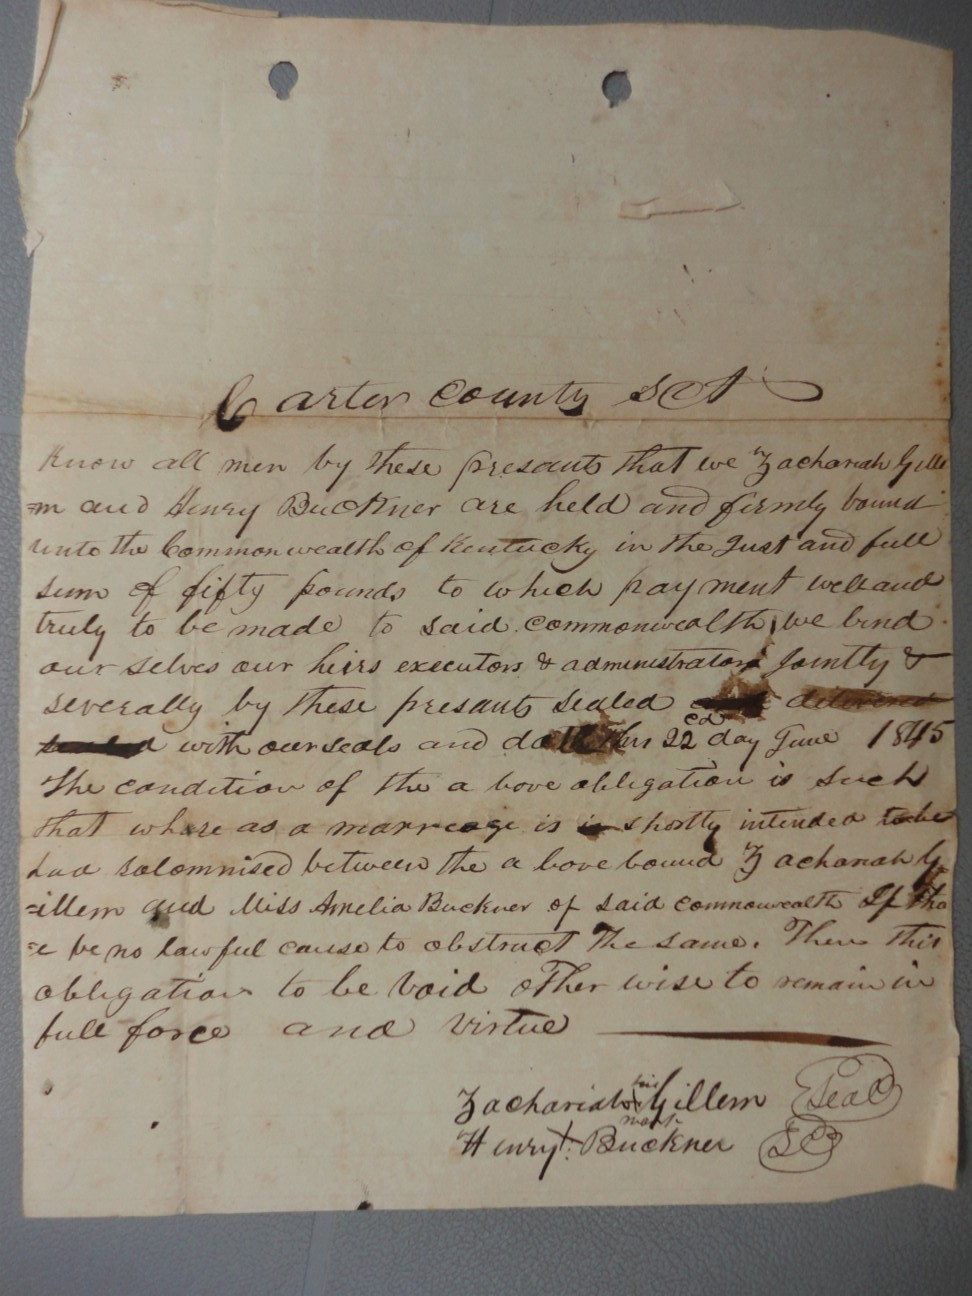 Carter County Sct
Know all men by these presants that we Zachariah Gille
=m and Henry Buckner are held and firmly bound
unto the Commonwealth of Kentucky in the Just and full
sum of fifty pounds to which payment well and
truly to be made to said commonwealth, we bind
our selves our heirs executors & administrators Jointly &
severally by these presants sealed delivered
with our seals and this 22cd day June 1845
The condition of the a bove obligation is such
that where as a marreage is shortly intended to be
had solomnised between the a bove bound Zachariah G
=illem and Miss Amelia Buckner of said commonwealth If the
=e be no lawful cause to obstruct the same. Then this
obligation to be Void other wise to remain in
full force and virtue
his
Zachariah X Gillem Seal
mark
Henry X Buckner